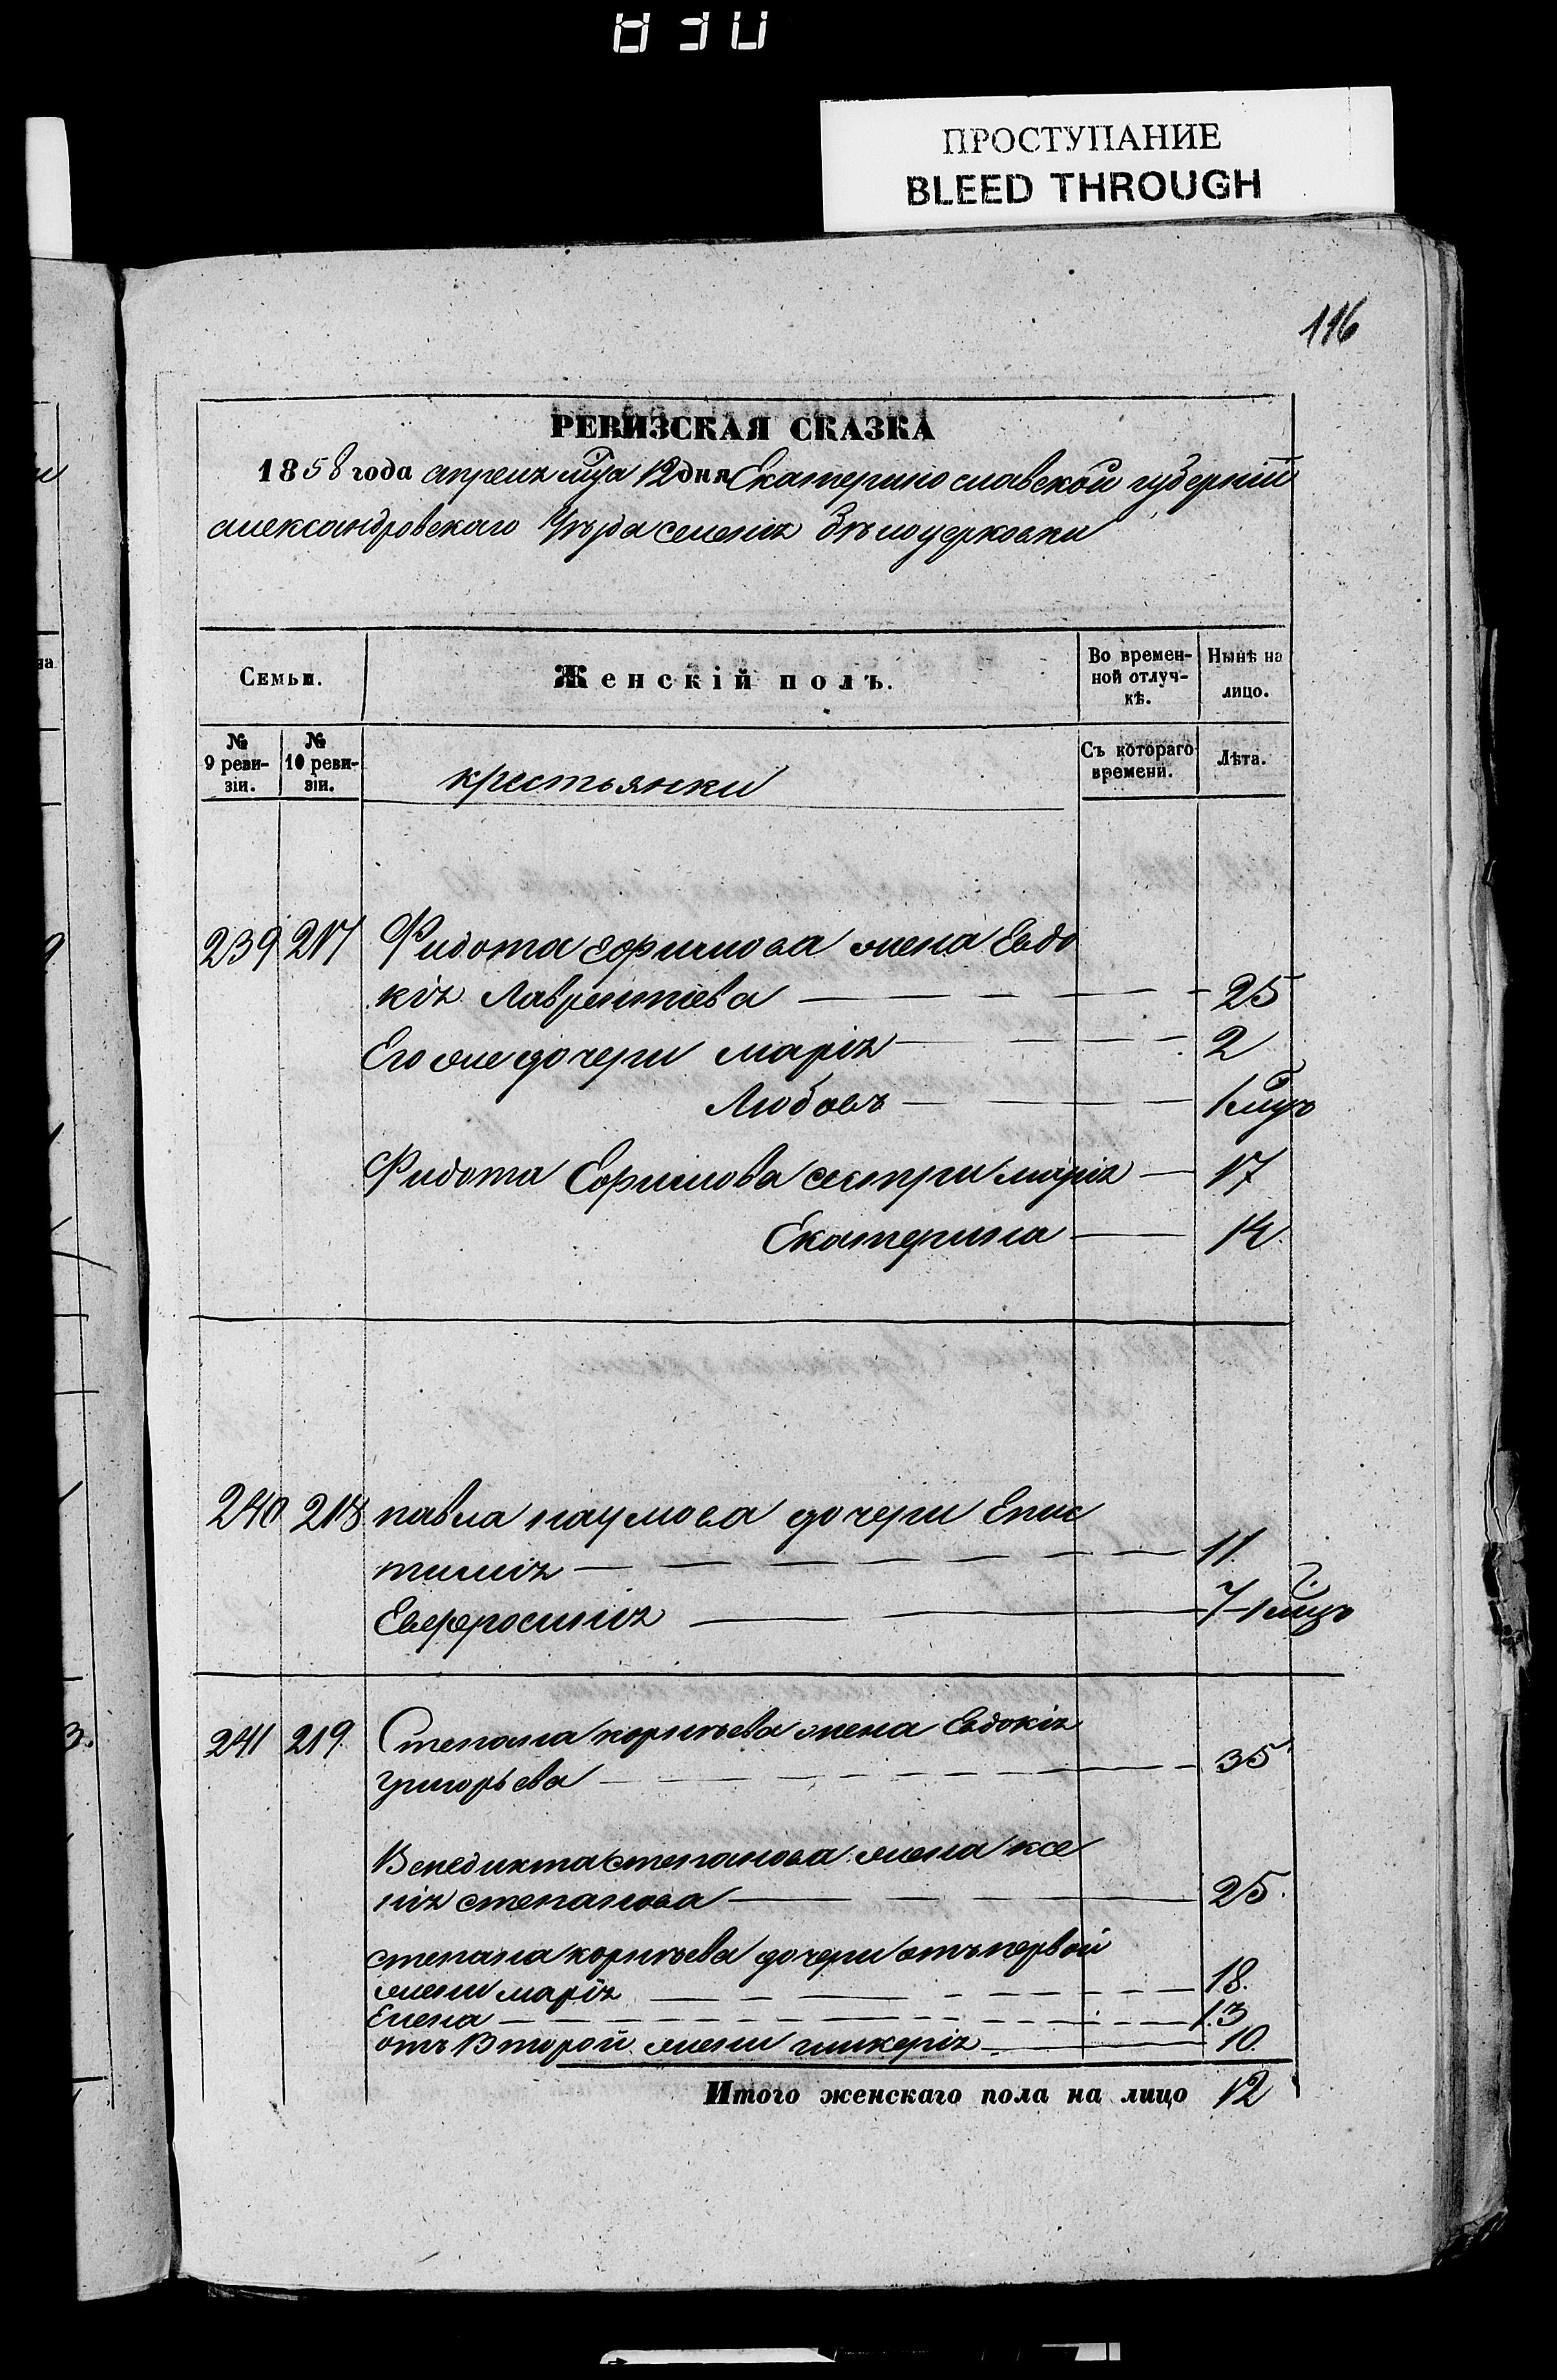 ПРОСТУПАНИЕ
BLEED THROUGH
116
РЕВИЗСКАЯ СКАЗКА
1858 года апреля мца 12 дня Екатеринославской губерніи
александровскаго Уѣзда селенія бѣлоцерковки
Семьи. Женскій полъ. Во времен- Нынѣ на
ной отлуч- лицо.
кѣ.
№ № Съ котораго Лѣта.
9 реви- 10 реви- времени.
зіи. зіи.
крестьянки
239 217 Фидота ефимова жена Евдо
кія Лаврентіева 25
Его же дочери марія 2
Любовь 1 мцъ
Фидота Ефимова сестри марія 17
Екатерина 14
240 218 павла наумова дочери Епис
тимія 11
Евфросинія 7 1 мцъ
241 219 Степана корнѣева жена Евдокія
григорьева 35
Венедикта степанова жена ксе
нія степанова 25
степана корнѣева дочери отъ первой
жени марія 18
Елена 13
отъ Второй жени гликерія 10
Итого женскаго пола на лицо 12